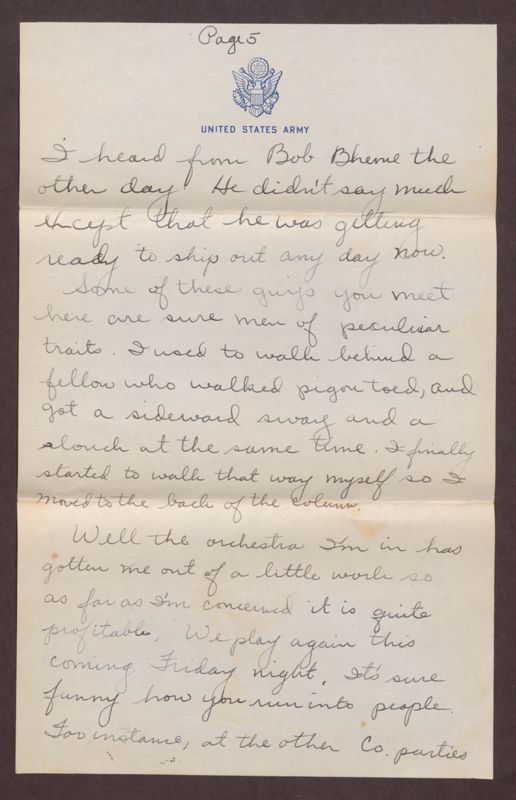 Page 5
UNITED STATES ARMY
I heard from Bob Bheme the
other day! He didn't say much
except that he was getting
ready to ship out any day now.
Some of these guys you meet
here are sure men of peculiar
traits. I used to walk behind a
fellow who walked pigon toed, and
got a sideward sway and a
slouch at the same time. I finally
started to walk that way myself so I
moved to the back of the column.
Well the orchestra I'm in has
gotten me out of a little work so
as far as I'm concerned it is quite
profitable. We play again this
coming Friday night. It's sure
funny how you run into people.
For instance, at the other Co. parties